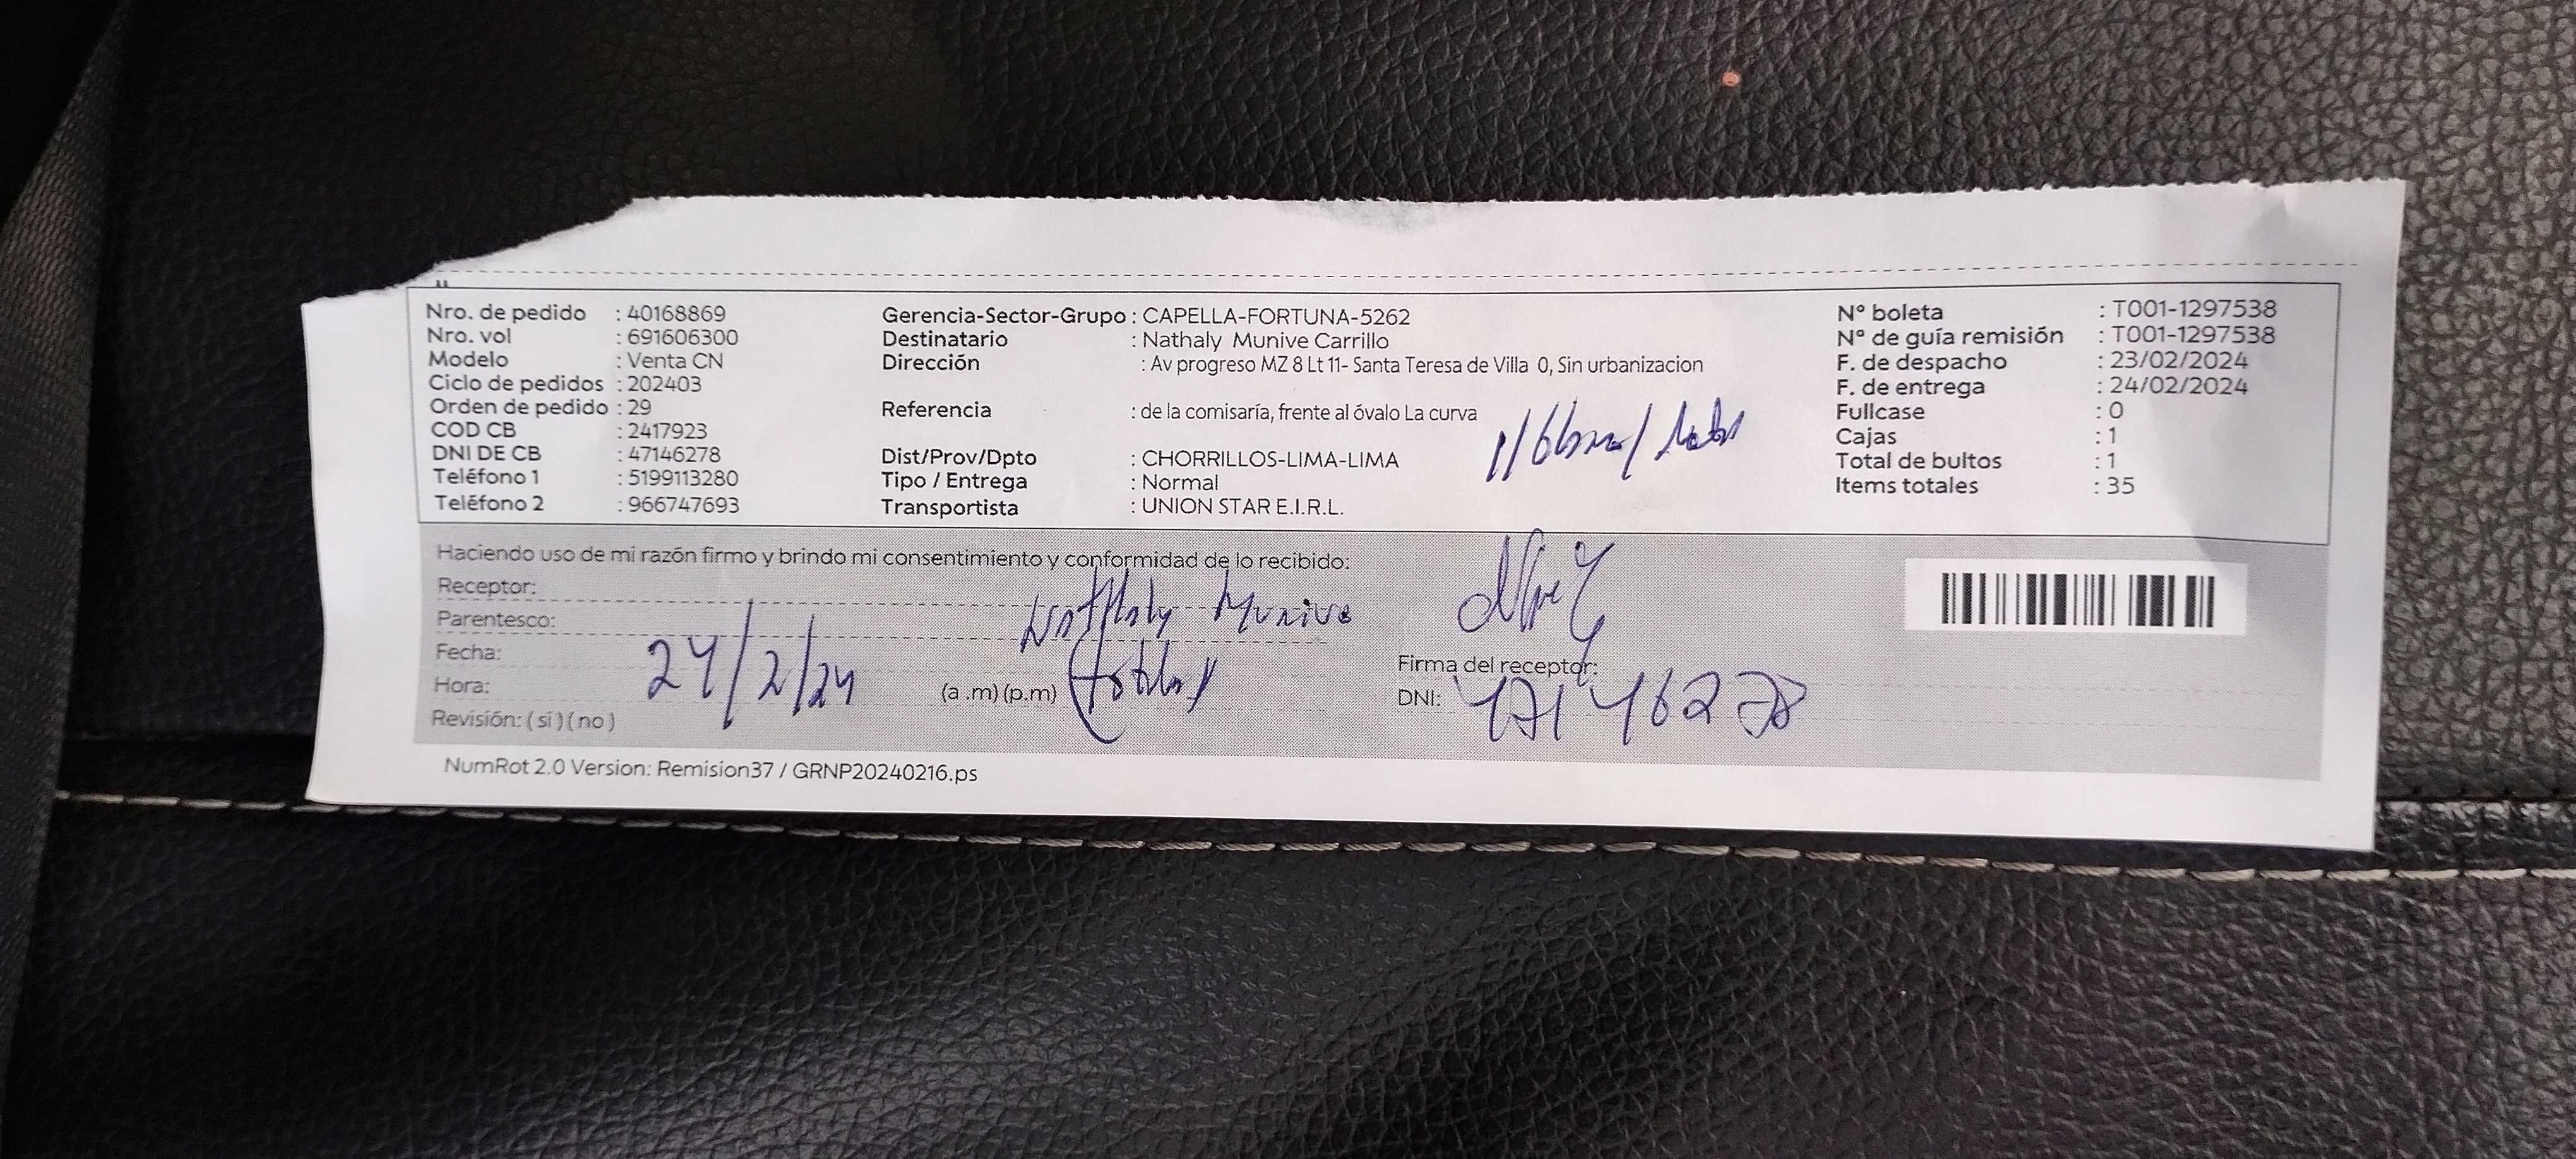 Nro. de pedido : 40168869
Nro. vol : 691606300
Modelo : Venta CN
Ciclo de pedidos : 202403
Orden de pedido : 29
COD CB : 2417923
DNI DE CB : 47146278
Teléfono 1 : 5199113280
Teléfono 2 : 966747693
Gerencia-Sector-Grupo : CAPELLA-FORTUNA-5262
Destinatario : Nathaly Munive Carrillo
Dirección : Av progreso MZ 8 Lt 11- Santa Teresa de Villa 0, Sin urbanizacion
Referencia : de la comisaría, frente al óvalo La curva
Dist/Prov/Dpto : CHORRILLOS-LIMA-LIMA
Tipo / Entrega : Normal
Transportista : UNION STAR E.I.R.L.
Nº boleta : T001-1297538
Nº de guía remisión : T001-1297538
F. de despacho : 23/02/2024
F. de entrega : 24/02/2024
Fullcase : 0
Cajas : 1
Total de bultos : 1
Items totales : 35
Haciendo uso de mi razón firmo y brindo mi consentimiento y conformidad de lo recibido:
Receptor: Nathaly Munive
Parentesco:
Fecha: 24/2/24
Hora: (a .m) (p.m)
Revisión: ( si ) ( no )
Firma del receptor:
DNI: 47146278
NumRot 2.0 Version: Remision37 / GRNP20240216.ps